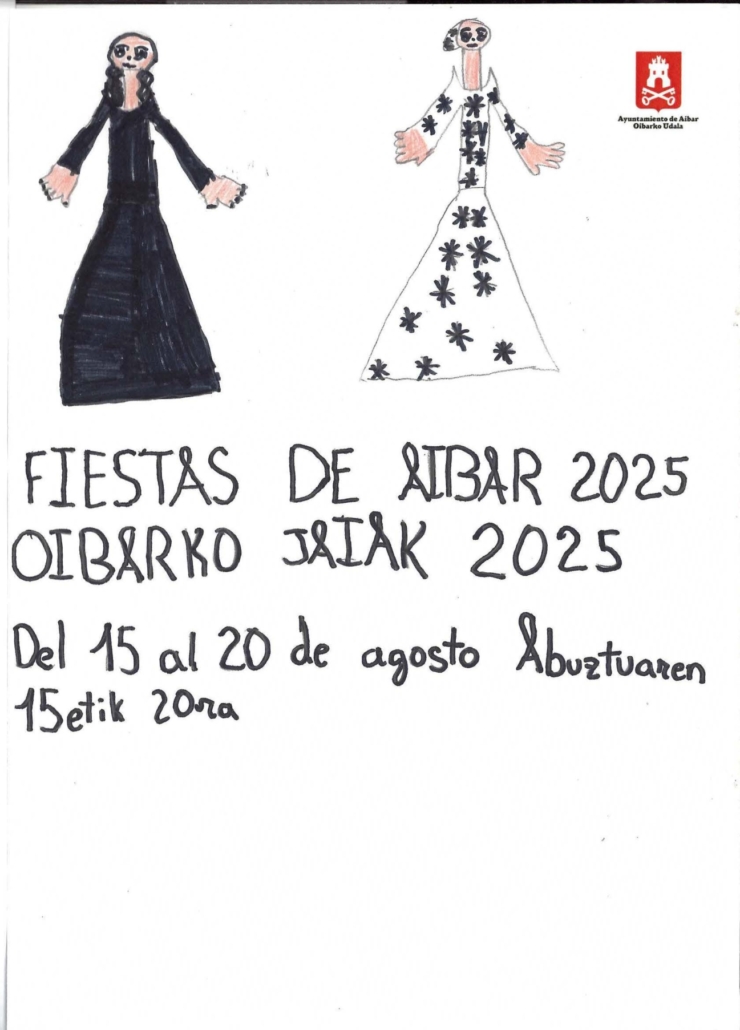 Ayuntamiento de Aibar
Oibarko Udala
FIESTAS DE AIBAR 2025
OIBARKO JAIAK 2025
Del 15 al 20 de agosto Abuztuaren
15etik 20ra